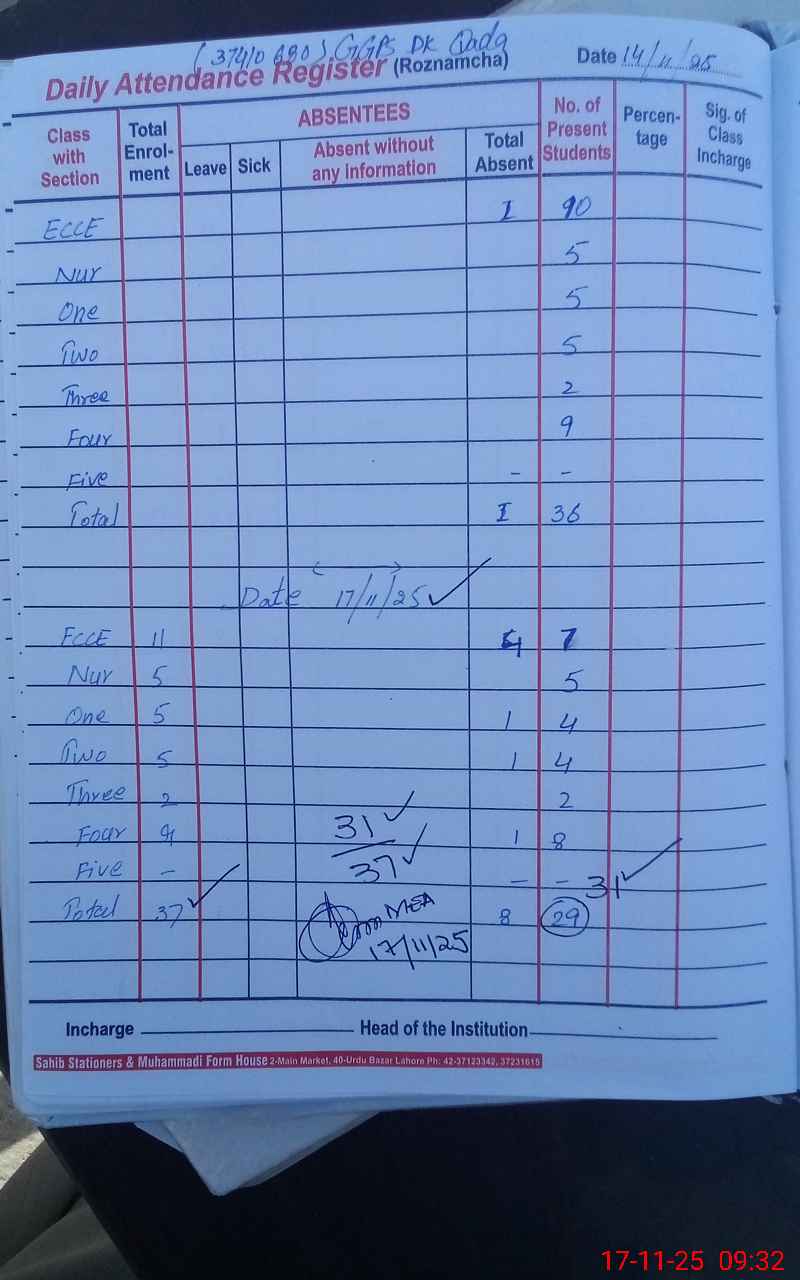 (37410690) GGPS DK Qadg
Daily Attendance Register (Roznamcha) Date 14/11/25
Class with Section Total Enrol-ment ABSENTEES No. of Present Students Percen-tage Sig. of Class Incharge
Leave Sick Absent without any information Total Absent
ECCE I 90
Nur 5
One 5
Two 5
Three 2
Four 9
Five - -
Total I 36
Date 17/11/25 ✓
ECCE 11 4 7
Nur 5 5
One 5 1 4
Two 5 1 4
Three 2 2
31 ✓
Four 9 1 8
37 ✓
Five - - - 31 ✓
Total 37 ✓ 8 29
MEA
17/11/25
Incharge Head of the Institution
Sahib Stationers & Muhammadi Form House 2-Main Market, 40-Urdu Bazar Lahore Ph: 42-37123342, 37231615
17-11-25 09:32